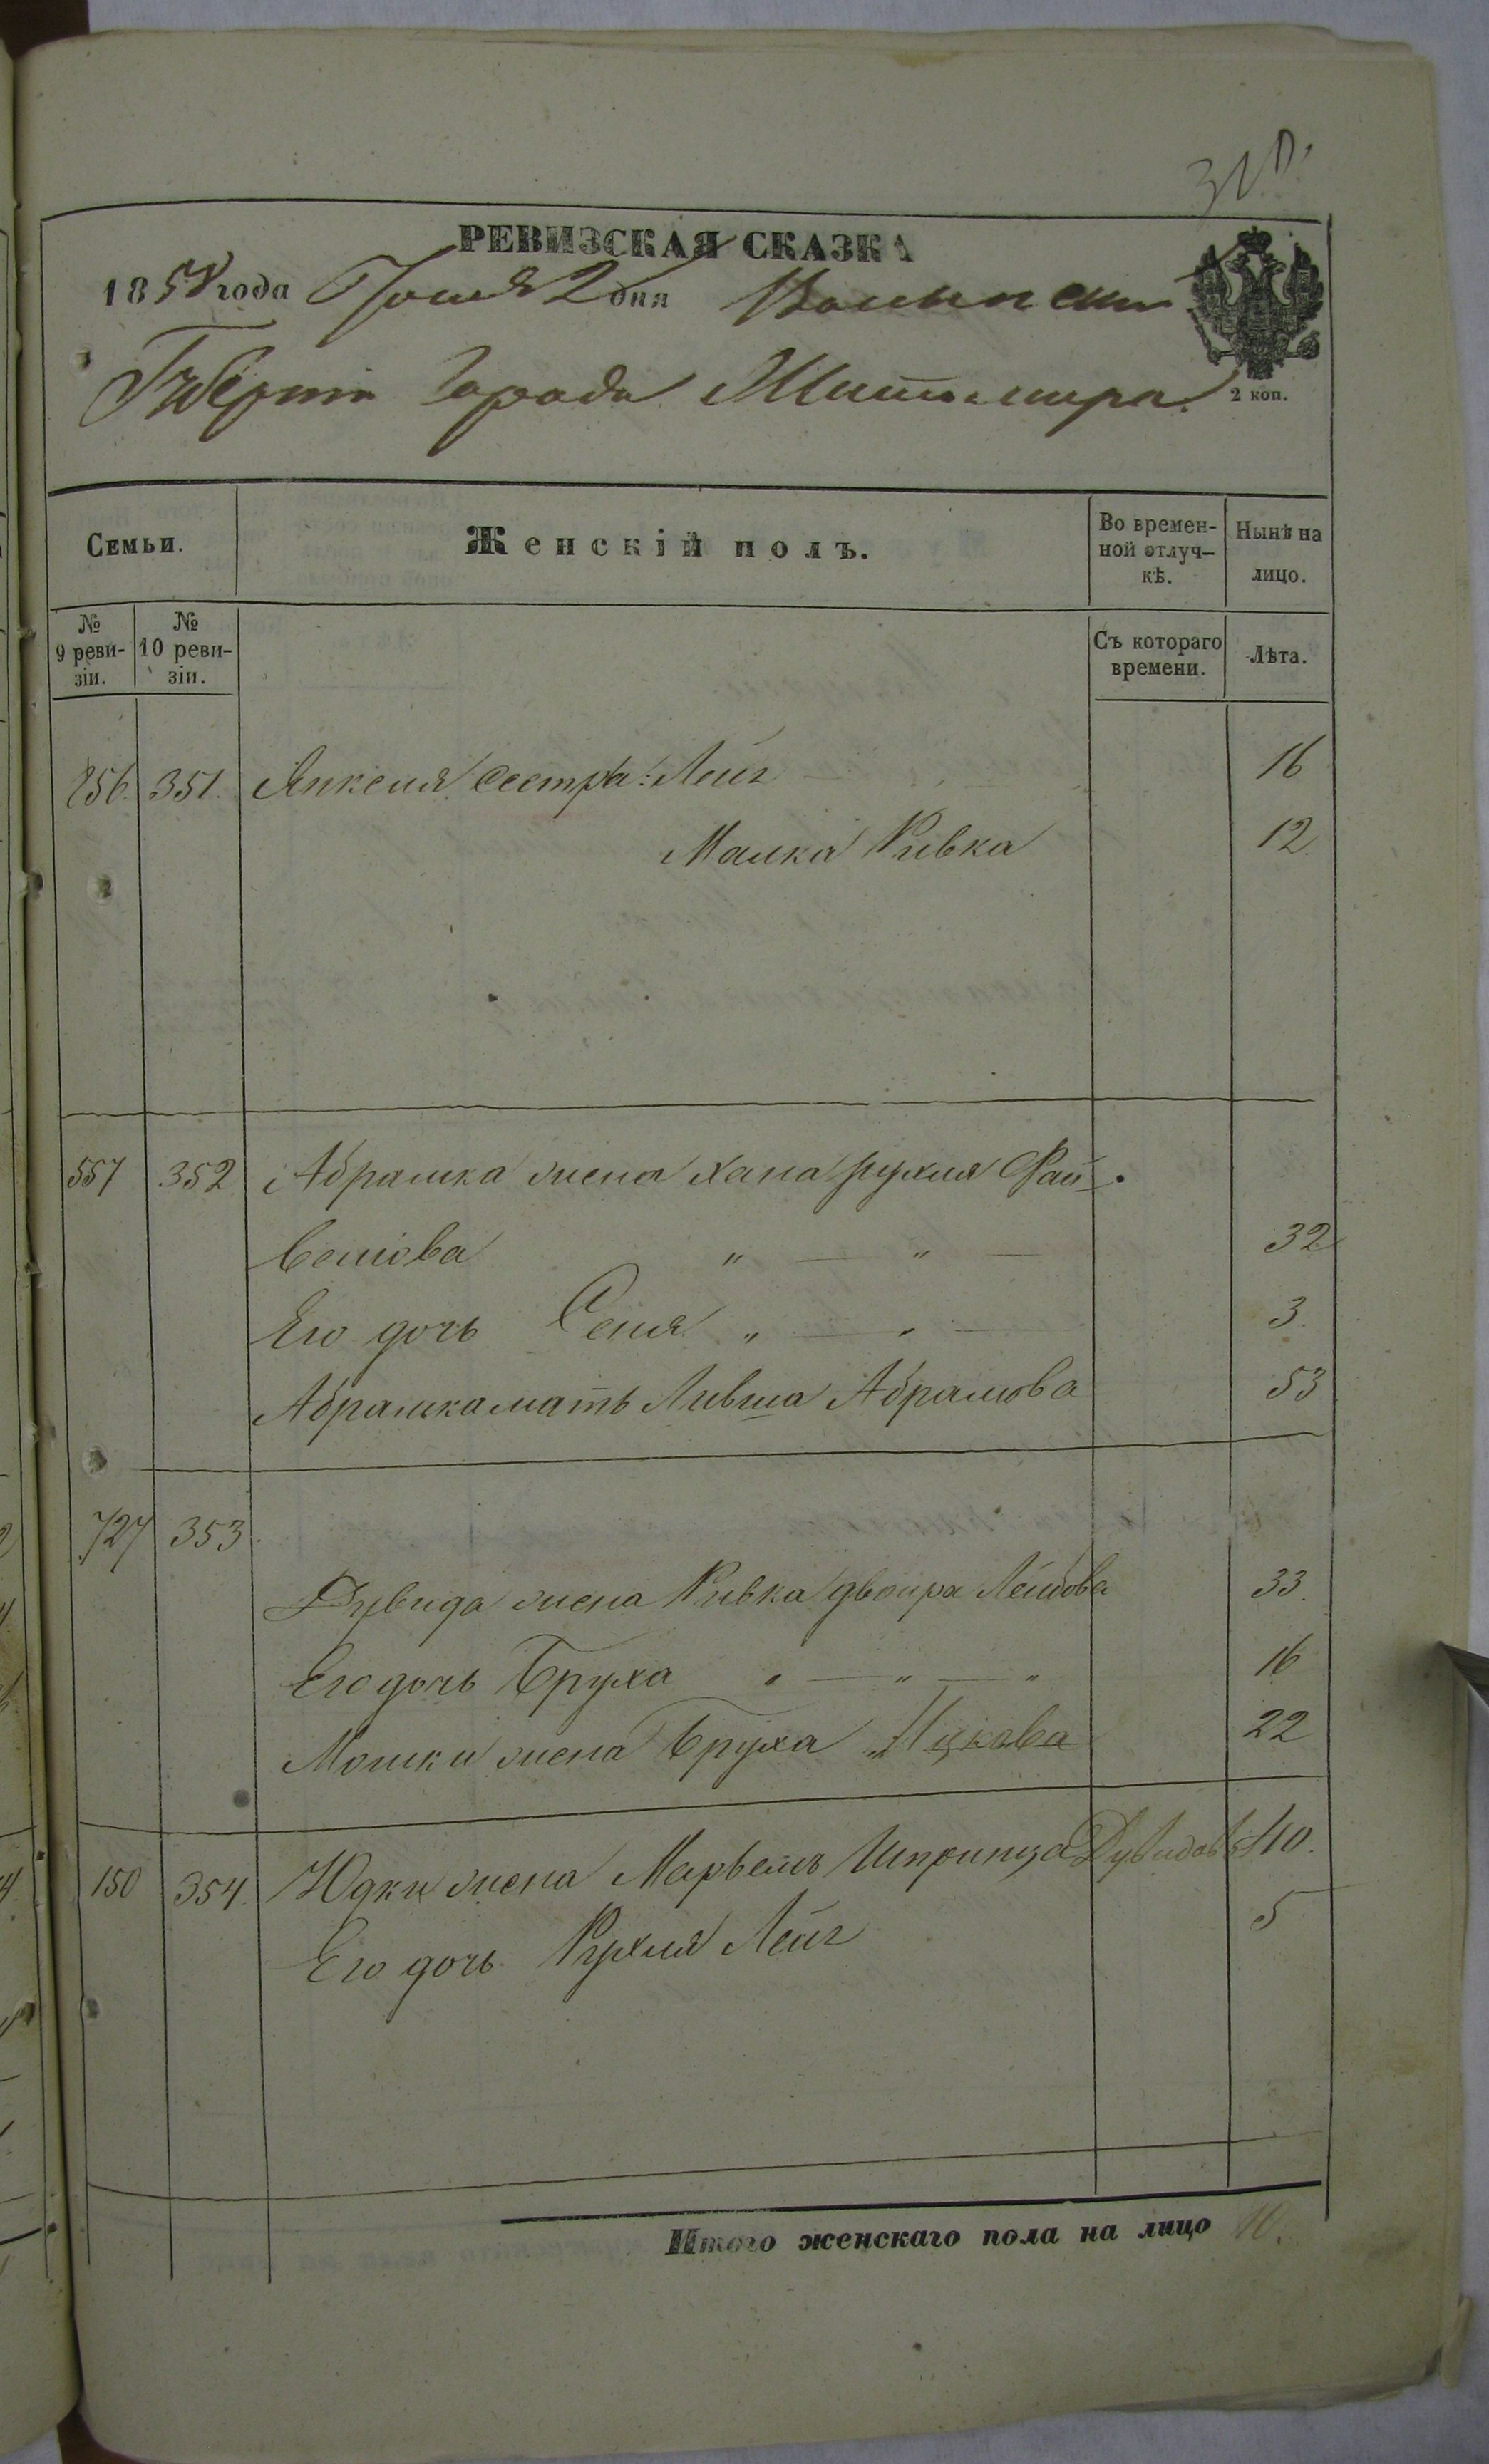 РЕВИЗСКАЯ СКАЗКА
1858 года Іюня 2 дня Волынской
Губерніи Города Житомира
2 коп.
Семьи.
Женскій полъ.
Во времен-
ной отлуч-
кѣ.
Нынѣ на
лицо.
№
9 реви-
зіи.
№
10 реви-
зіи.
Съ котораго
времени.
Лѣта.
351. Янкеля сестра: Лея 16
Малка Ривка 12
557 352 Абрамка жена Хана рухля Фай-
вешова " — " — 32
Его дочь Сеня " — " — 3
Абрамка мать Ливша Абрамова 53
727 353
Дувида жена Ривка двойра Лейбова 33.
Его дочь Бруха " — " — " 16
Мошки жена Бруха Ицкова 22
150 354. Юдки жена Марьемъ Шпринца Дувидова 40.
Его дочь Рухля Лея 5
Итого женскаго пола на лицо 10.